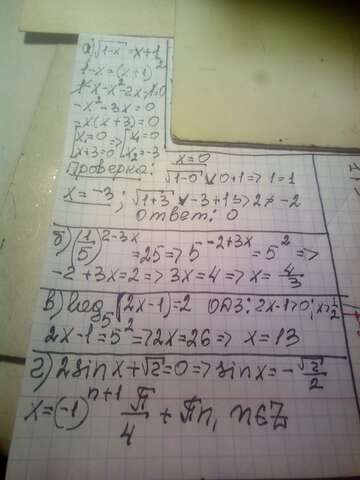 а) √1-x = x+1
1-x=(x+1)²
1-x-x²-2x-1=0
-x²-3x=0
-x(x+3)=0
[x=0 x+3=0 => [x₁=0 x₂=-3
Проверка: x=0
√1-0 ∨ 0+1 => 1=1
x=-3; √1+3 ∨ -3+1 => 2≠-2
Ответ: 0
б) (1/5)^2-3x = 25 => 5^-2+3x = 5² =>
-2+3x=2 => 3x=4 => x= 4/3
в) log₅(2x-1)=2 ОДЗ: 2x-1>0; x>1/2
2x-1=5² => 2x=26 => x=13
г) 2sinx+√2=0 => sinx=-√2/2
x=(-1)^n+1 π/4 + πn, n∈Z